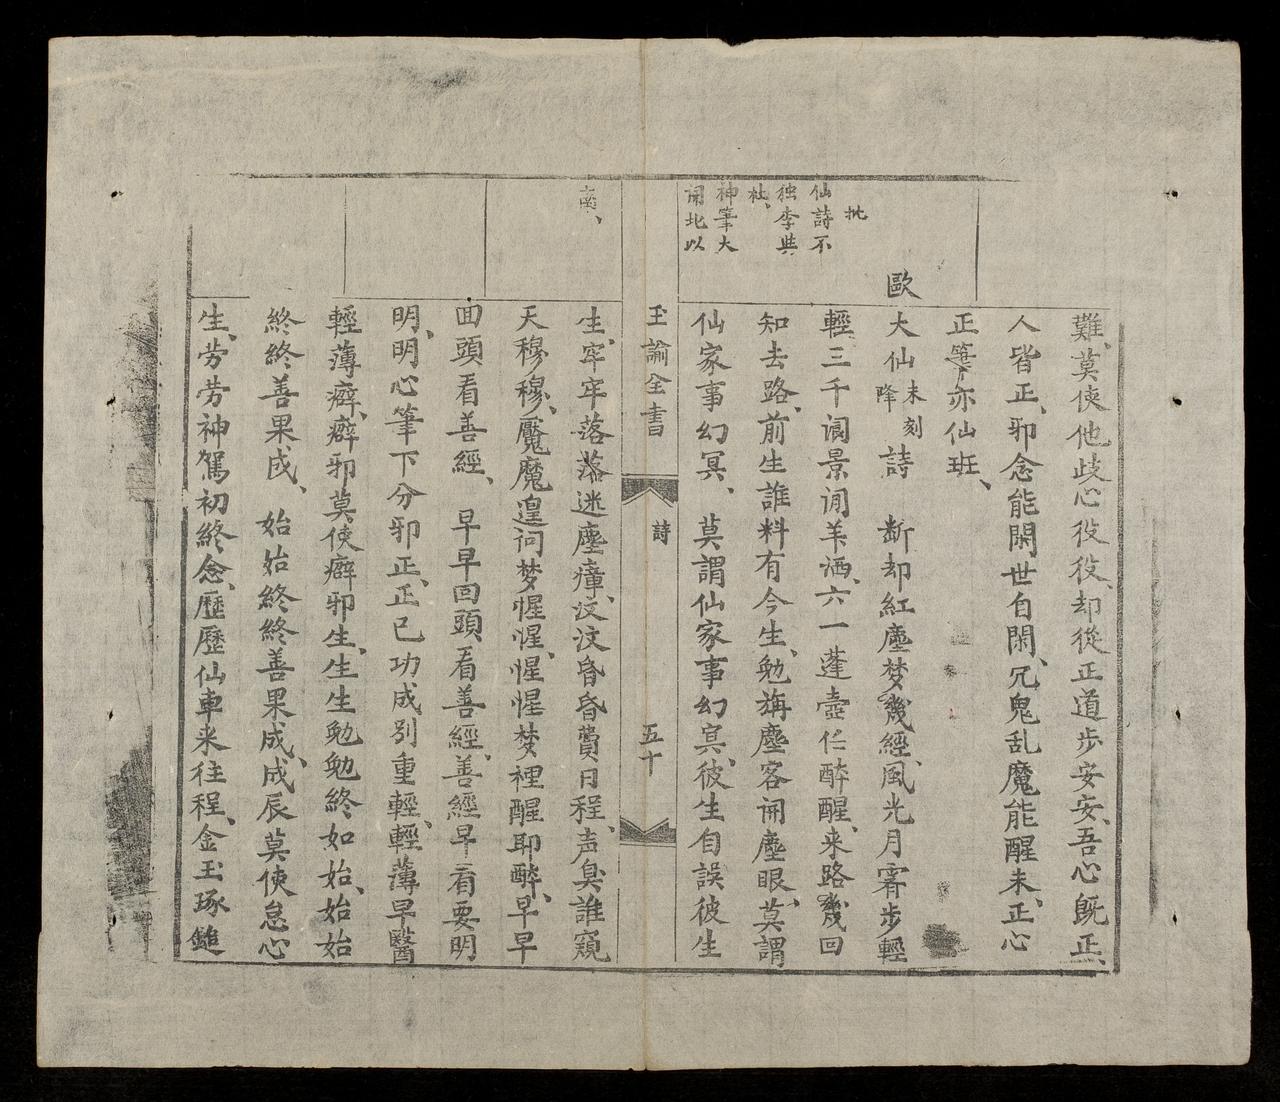 難、莫使他歧心役役、却從正道步安安、吾心既正、
人皆正、邪念能閑世自閑、冗鬼乱魔能醒未、正心
正筆亦仙班、
歐
大仙未刻降詩　断却紅塵梦幾經、風光月霽步輕
輕三千阆景閒羊洒、六一蓬壺任醉醒、来路幾回
知去路、前生誰料有今生、勉旃塵客開塵眼、莫謂
仙家事幻冥、莫謂仙家事幻冥、彼生自誤彼生
批
仙詩不
独李與
杜、
神筆大
開北以
玉諭全書
詩
五十
南、
生、牢牢落落迷塵瘴、汶汶昏昏費日程、声臭誰窺
天穆穆、魘魔遑问梦惺惺、惺惺梦裡醒耶醉、早早
囬頭看善經、早早回頭看善經、善經早看要明
明、明心筆下分邪正、正已功成别重輕、輕薄早醫
輕薄癖、癖邪莫使癖邪生、生生勉勉終如始、始始
終終善果成、始始終終善果成、成辰莫使怠心
生、劳劳神駕初終念、歷歷仙車来往程、金玉琢鎚